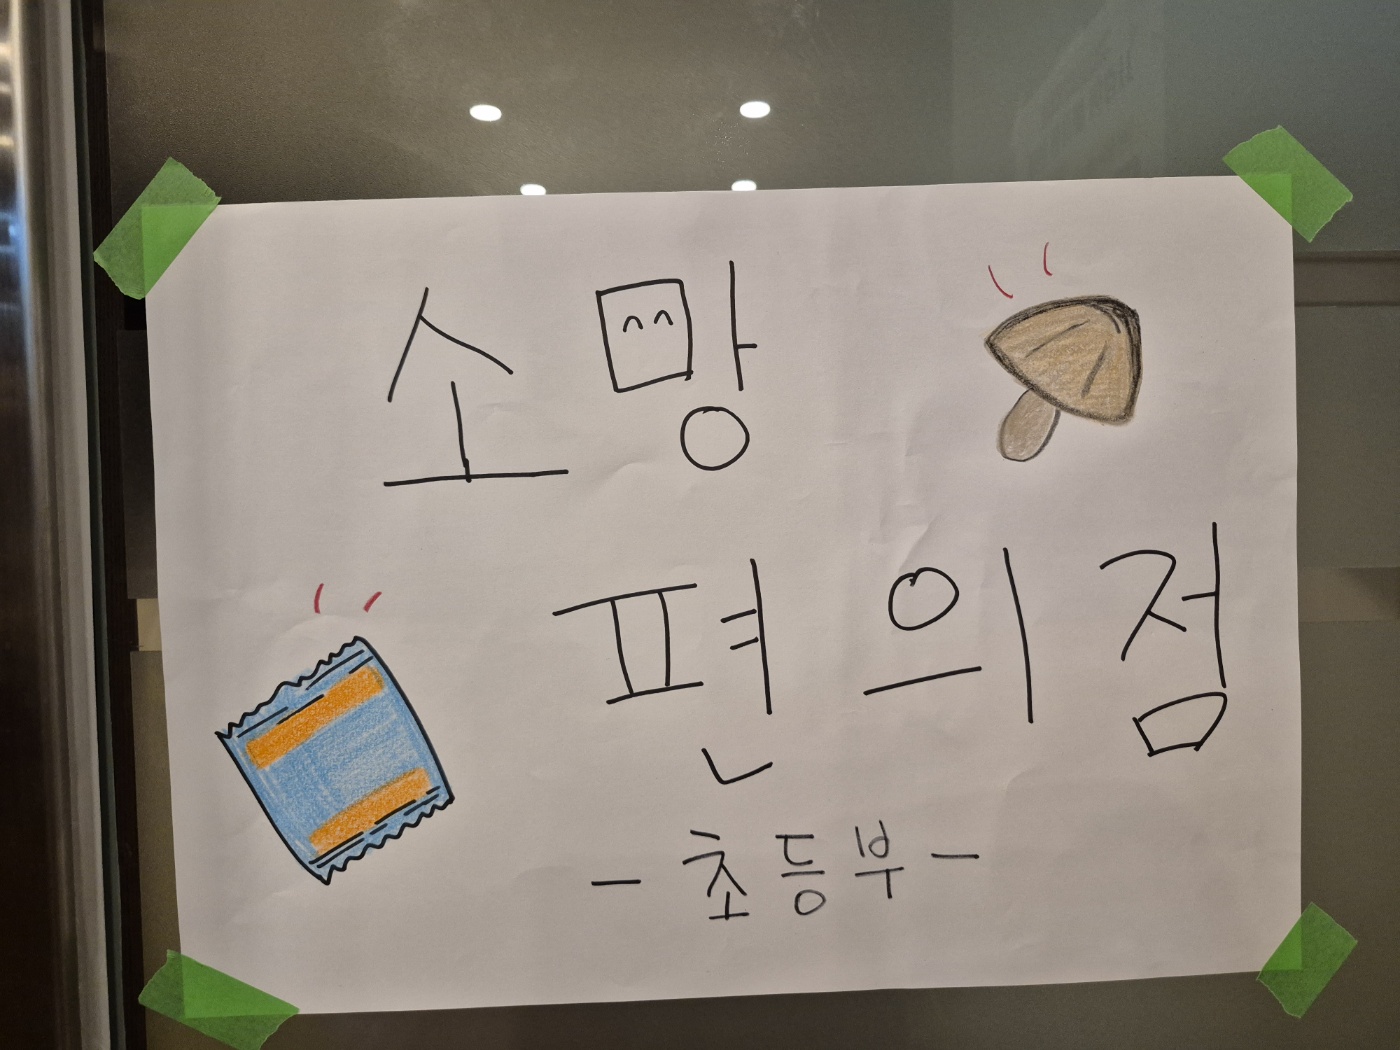 소망
편의점
- 초등부 -